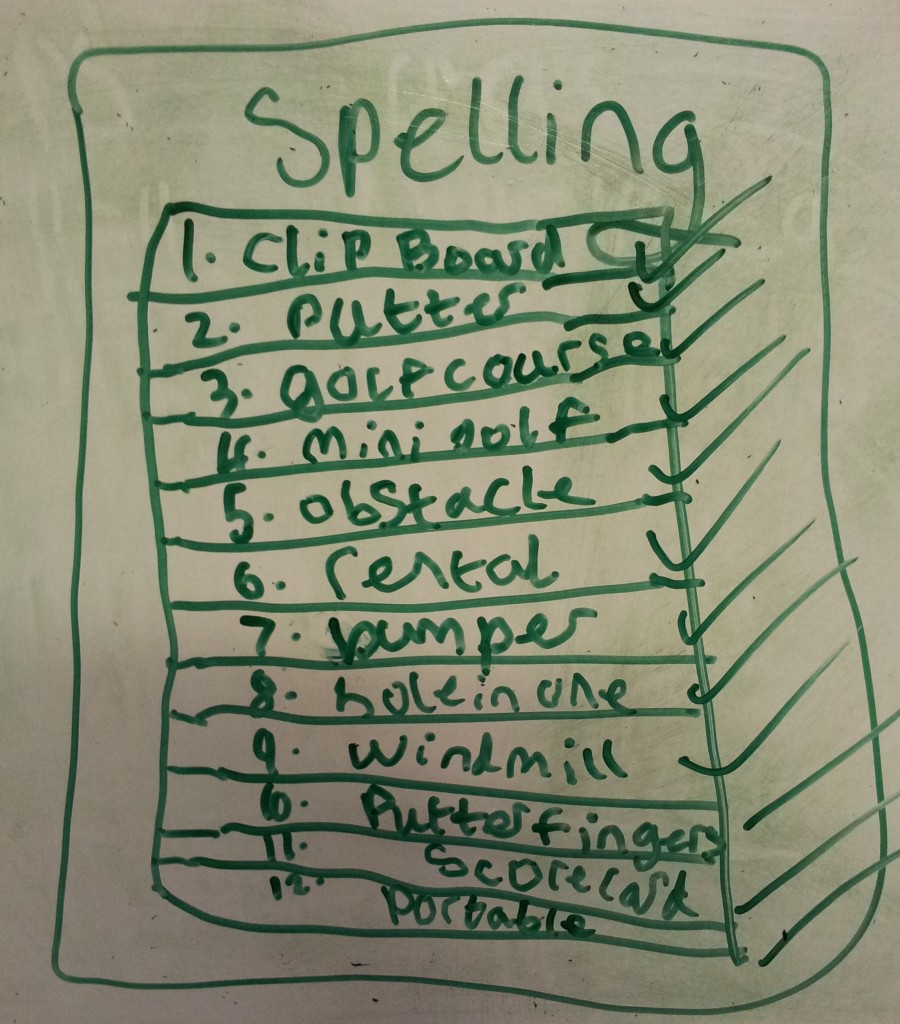 Spelling
1. Clip Board
2. Putter
3. golf course
4. mini golf
5. obstacle
6. rental
7. bumper
8. hole in one
9. windmill
10. Putter fingers
11. Scorecard
12. Portable